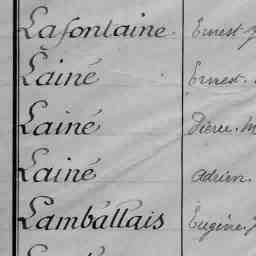 Lafontaine Ernest
Lainé Ernest.
Lainé Pierre.
Lainé Adrien.
Lamballais Eugène.